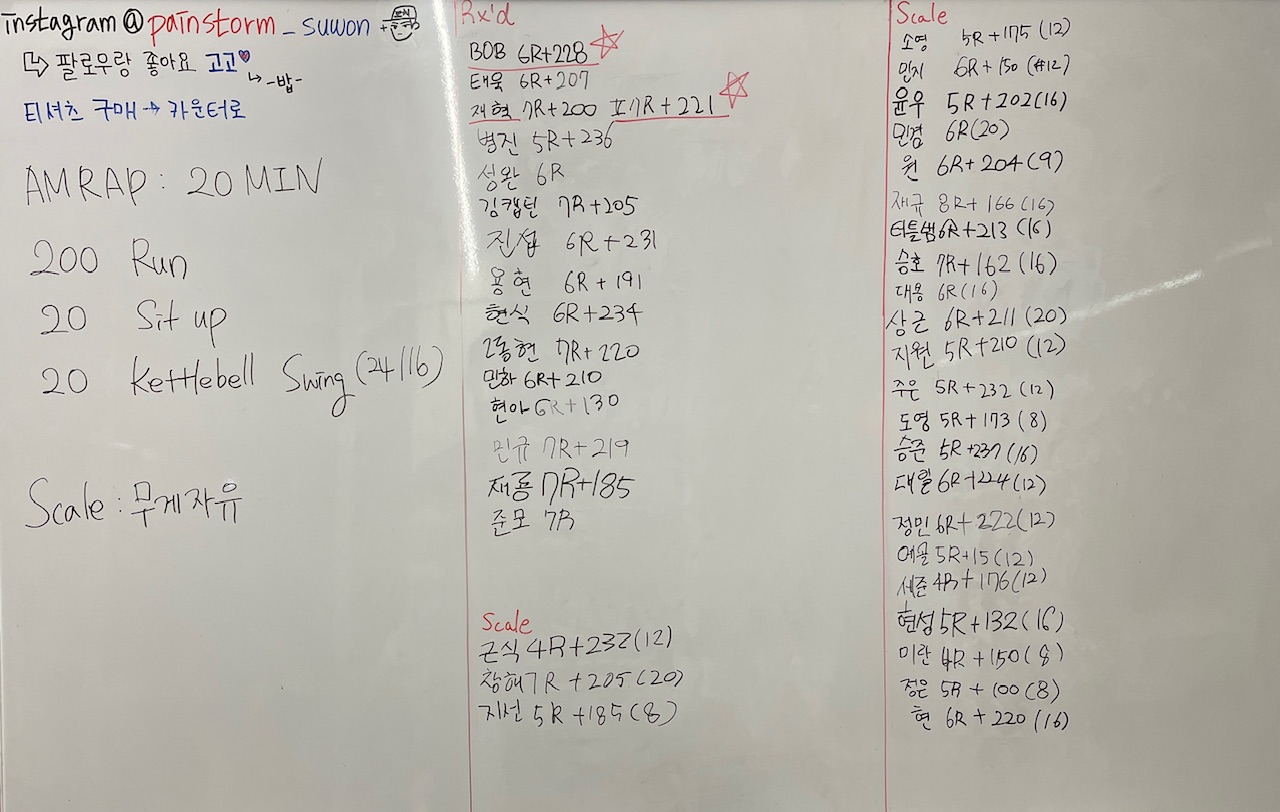 instagram@painstorm_suwon
↳ 팔로우랑 좋아요 고고♥
↳ -밥-
티셔츠 구매 → 카운터로
AMRAP : 20 MIN
200 Run
20 Sit up
20 Kettlebell Swing (24/16)
Scale : 무게자유
Rx'd
BOB 6R+228 ☆
태욱 6R+207
재혁 7R+200 7R+221 ☆
병진 5R+236
성완 6R
김캡틴 7R+205
진섭 6R+231
용현 6R+191
현식 6R+234
2동현 7R+220
민하 6R+210
현아 6R+130
민규 7R+219
재룡 7R+185
준모 7R
Scale
근식 4R+232(12)
창해 7R+205(20)
지선 5R+185(8)
Scale
소영 5R+175(12)
민지 6R+150(#12)
윤우 5R+202(16)
민겸 6R(20)
원 6R+204(9)
재규 8R+166(16)
터틀쌤 6R+213(16)
승호 7R+162(16)
대용 6R(16)
상근 6R+211(20)
지원 5R+210(12)
주은 5R+232(12)
도영 5R+173(8)
승준 5R+237(16)
6R+224(12)
정민 6R+222(12)
5R+15(12)
세준 4R+176(12)
현성 5R+132(16)
미란 4R+150(8)
정은 5R+100(8)
현 6R+220(16)